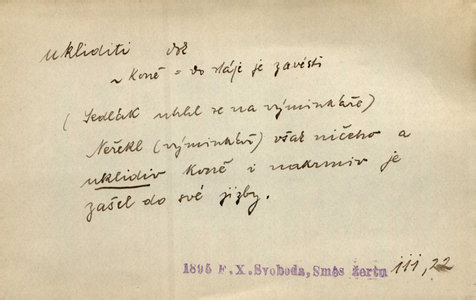 ukliditi dok
~ koně = do stáje je zavésti
(Sedlák uhlal se na výminkáře)
Neřekl (výminkář) však ničeho a
uklidiv koně i nakrmiv je
zašel do své jizby.
1895 F.X.Svoboda, Směs žertu iii, 22